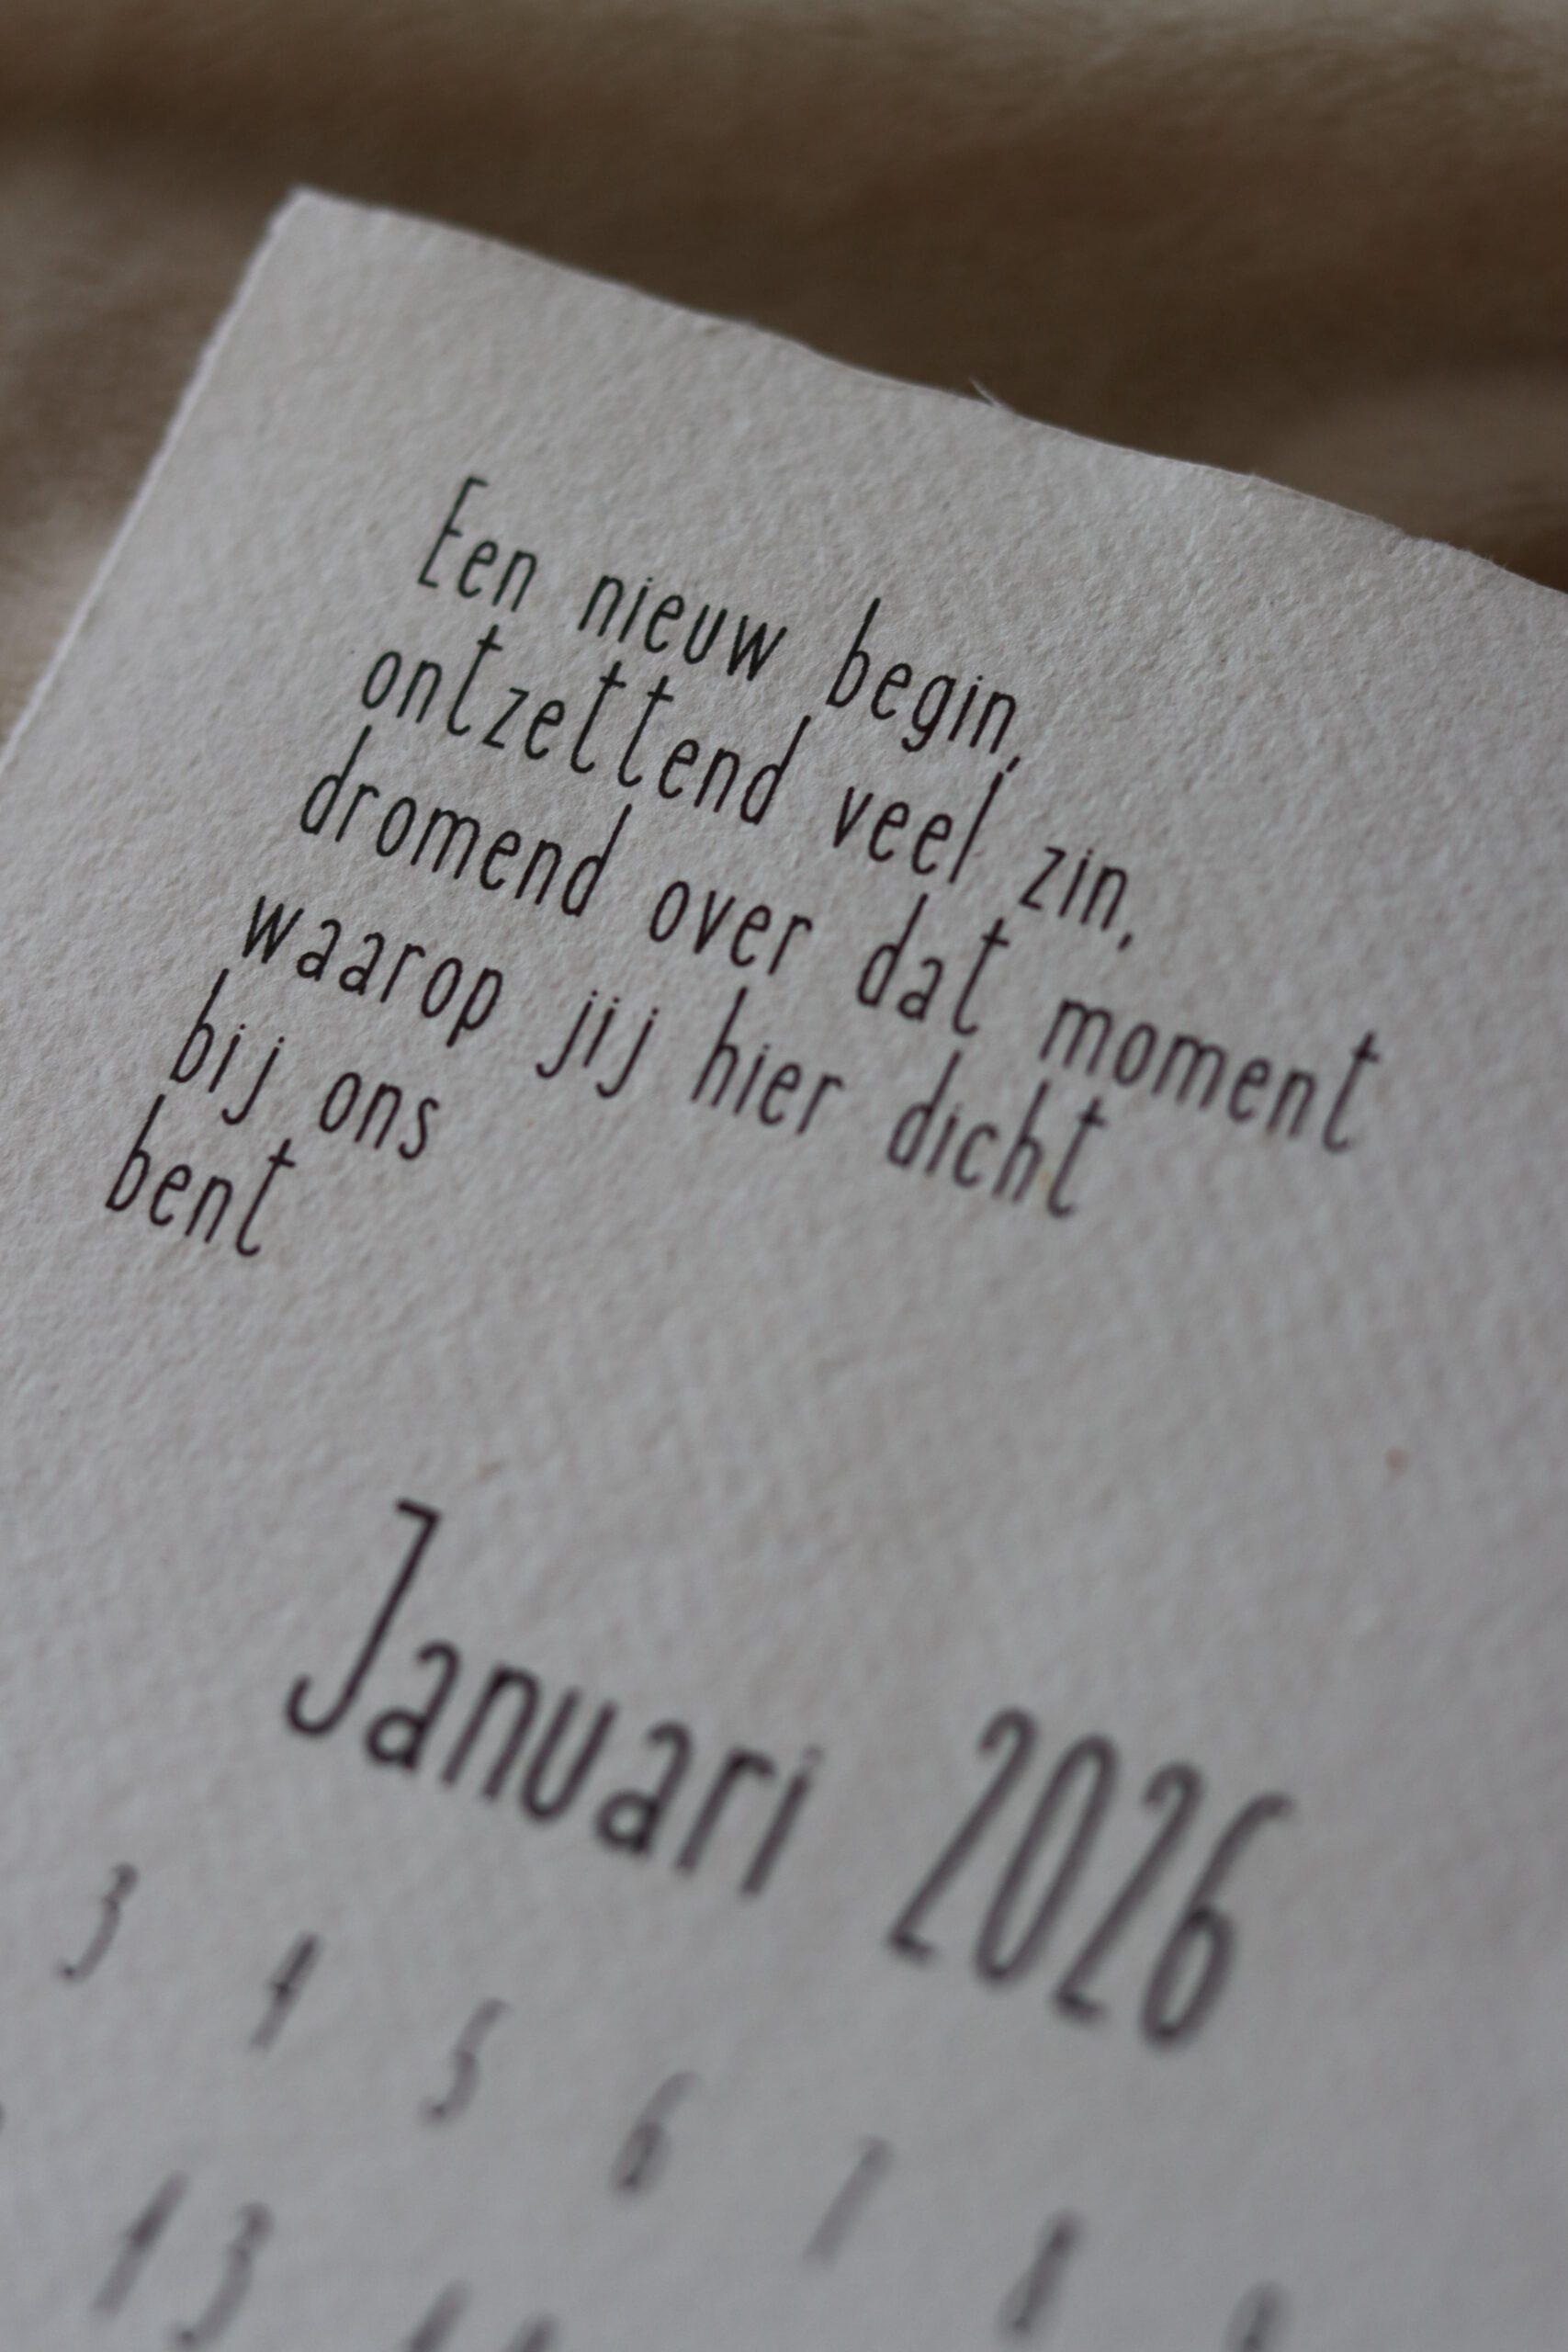 Een nieuw begin,
ontzettend veel zin,
dromend over dat moment
waarop jij hier dicht
bij ons
bent
Januari 2026
3 4 5 6 7 8
13